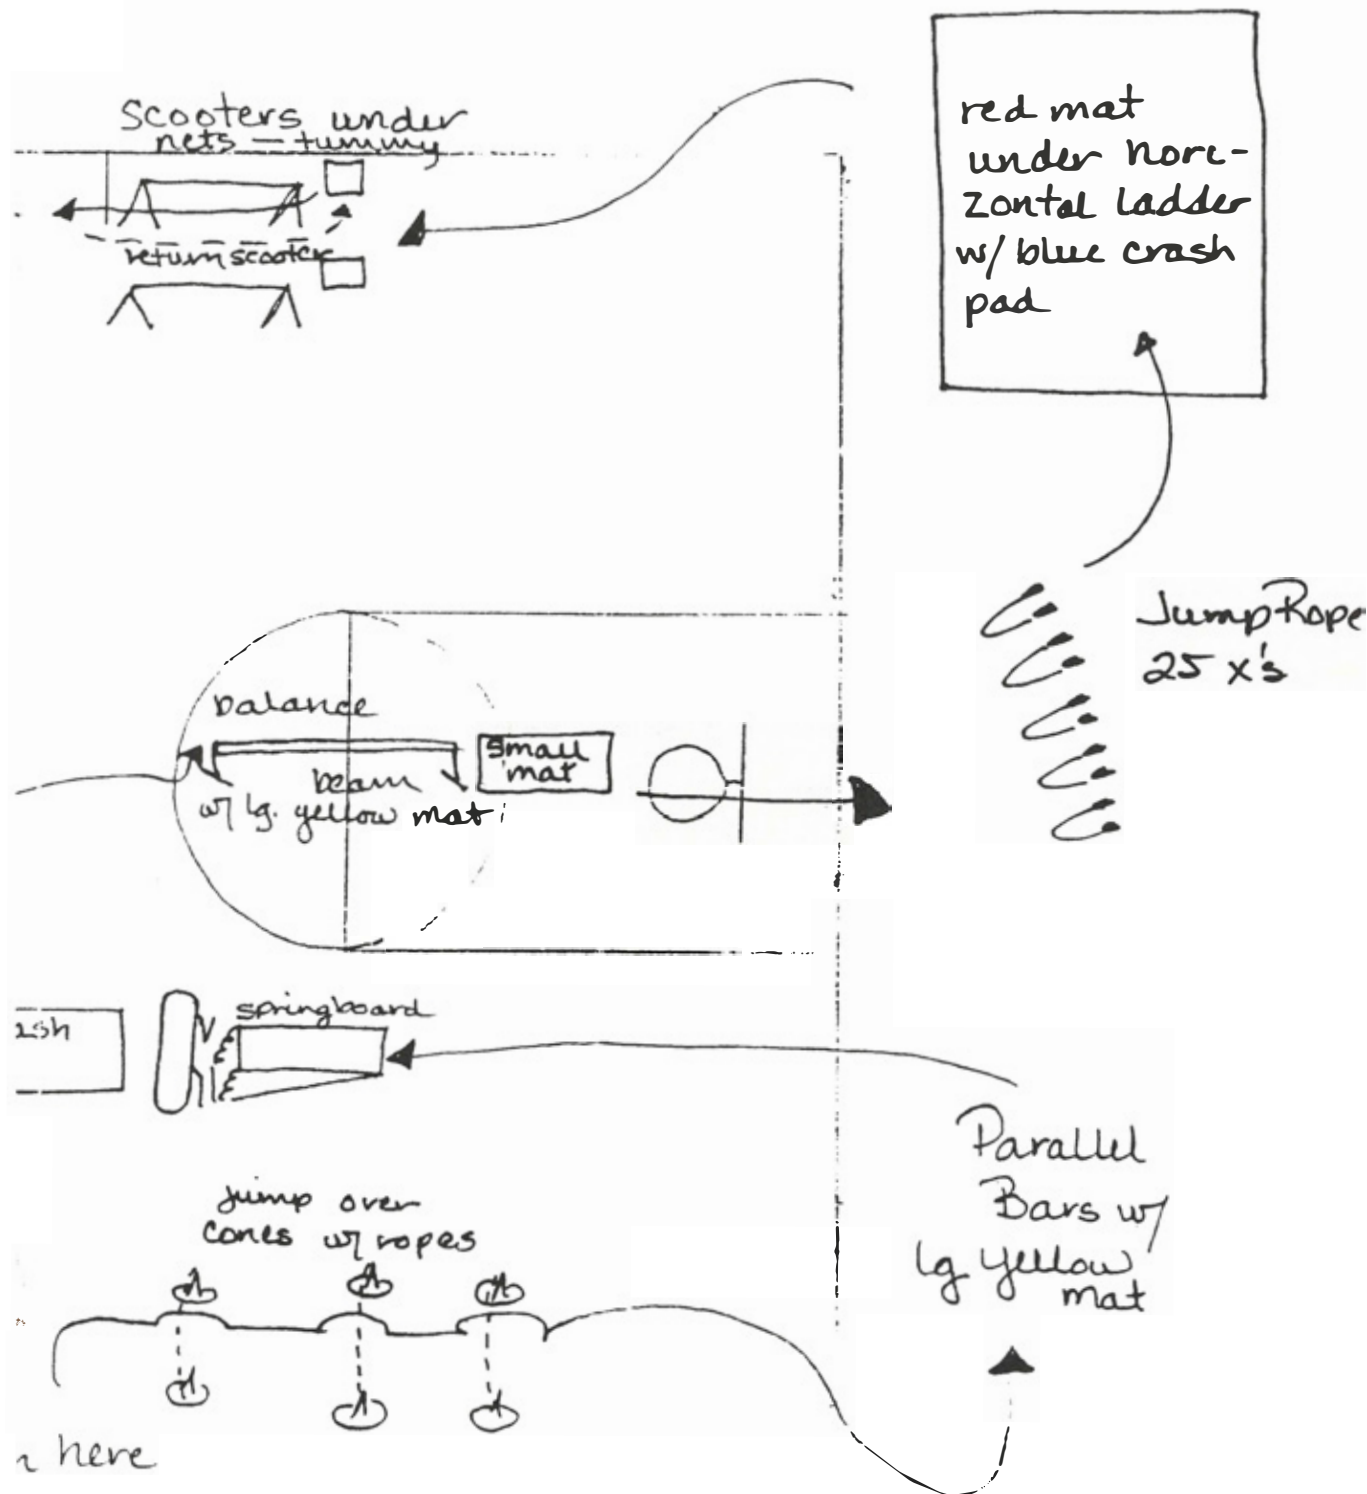 Scooters under
nets — tummy
return scooter
red mat
under hori-
zontal ladder
w/ blue crash
pad
Jump Rope
25 x's
balance
beam
w/ lg. yellow mat
small
mat
springboard
Parallel
Bars w/
lg yellow
mat
jump over
cones w/ ropes
here